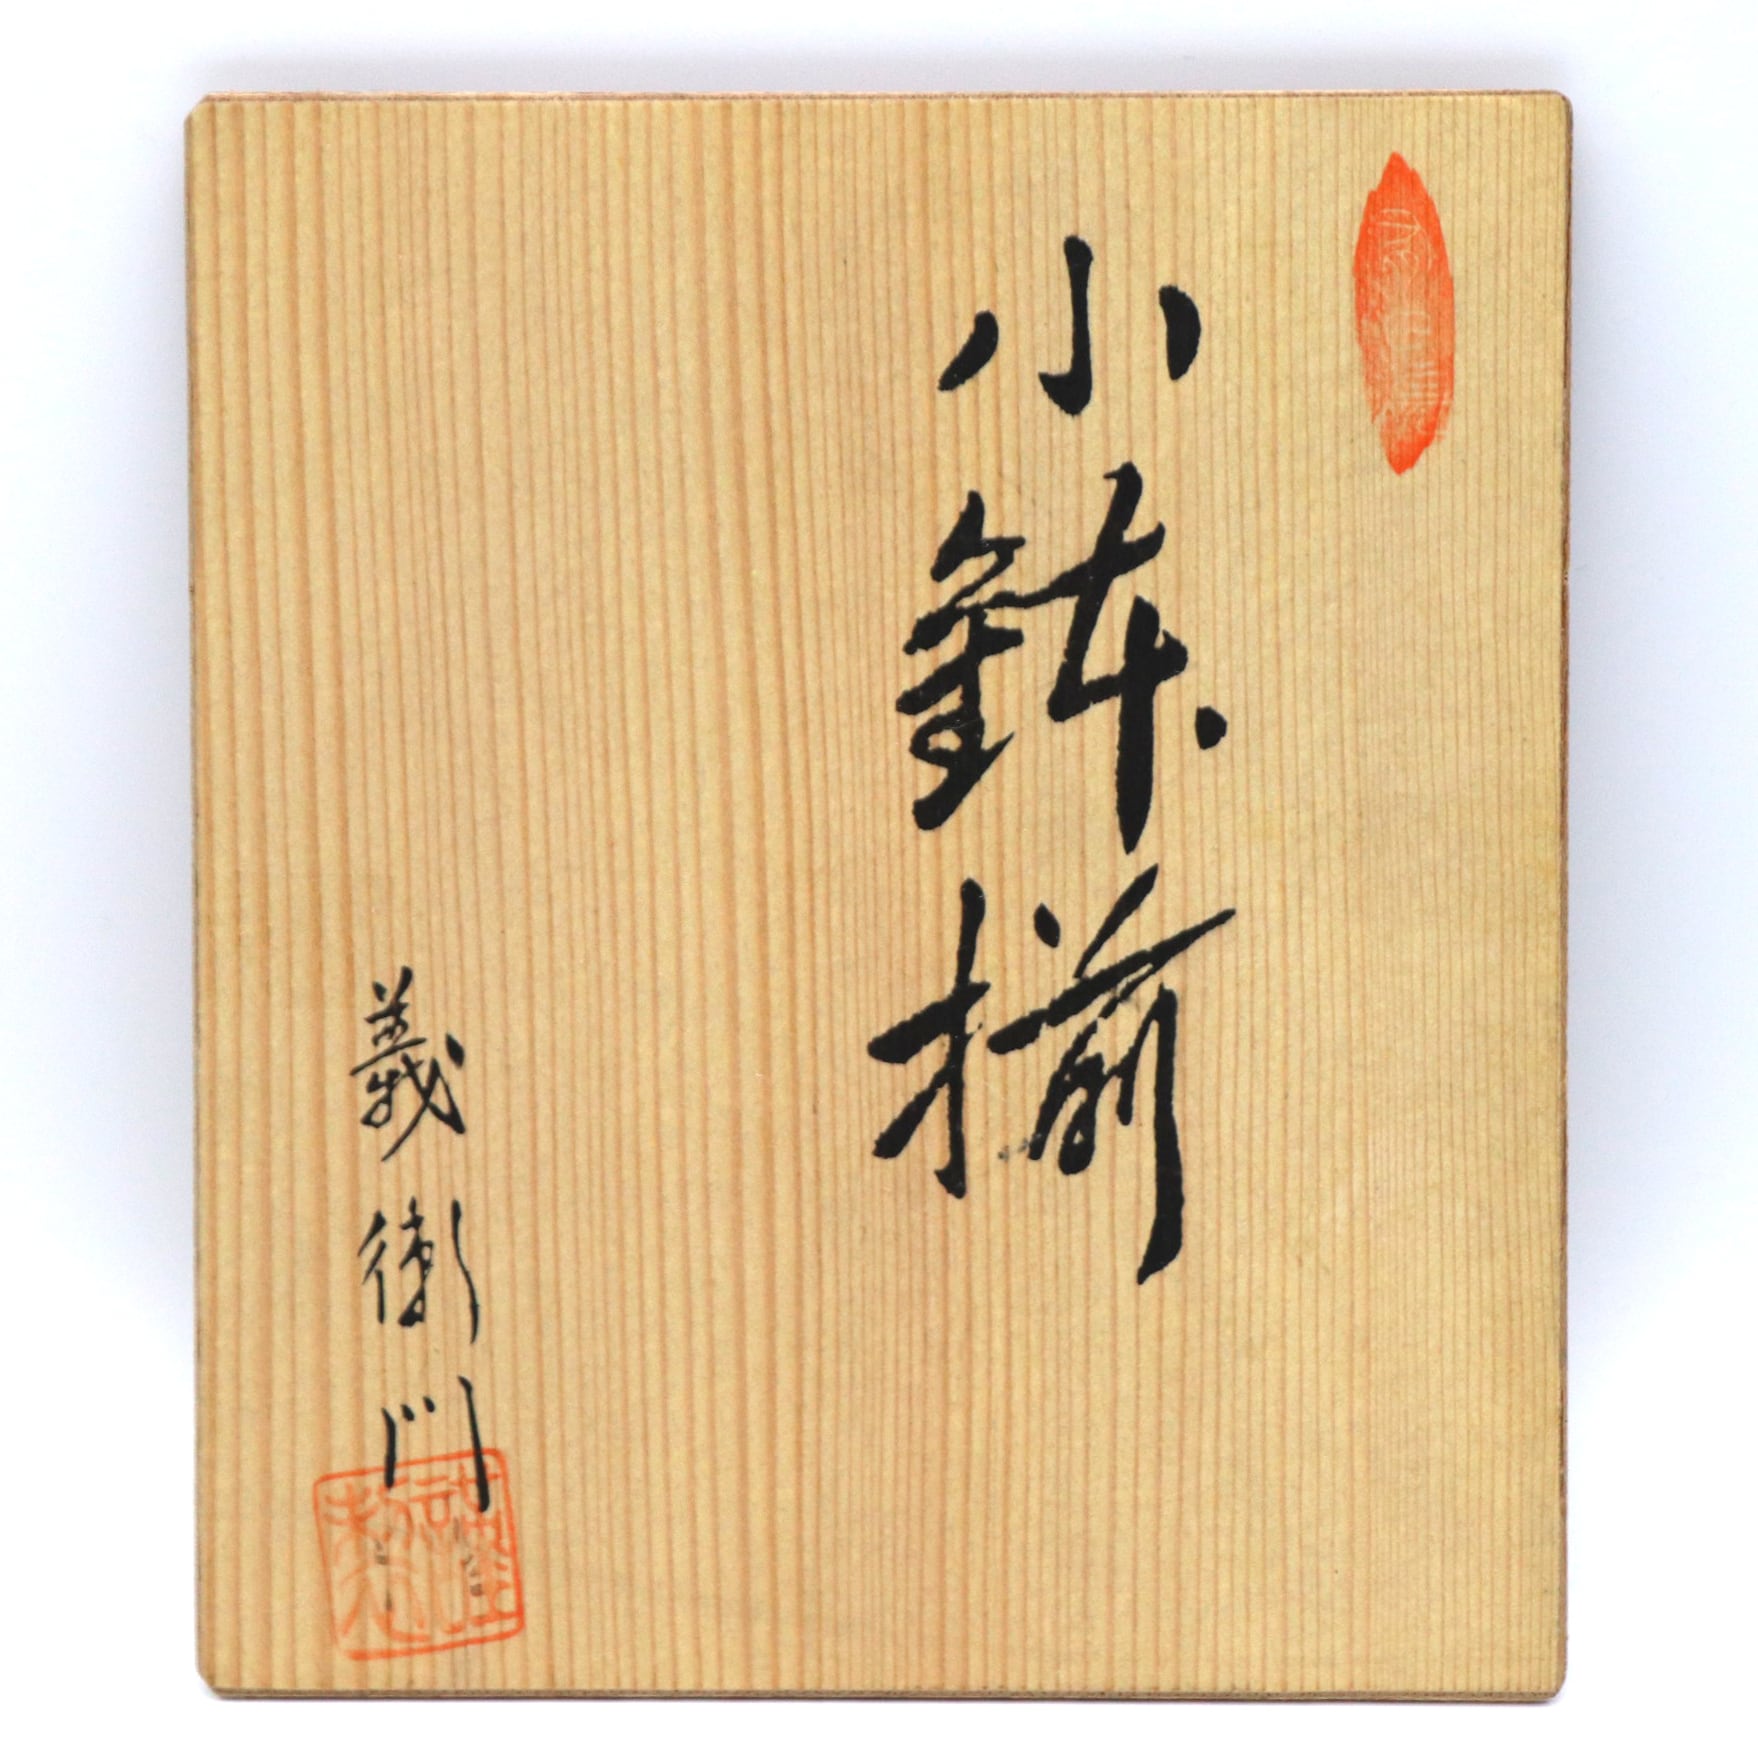 小鉢揃
義衛門